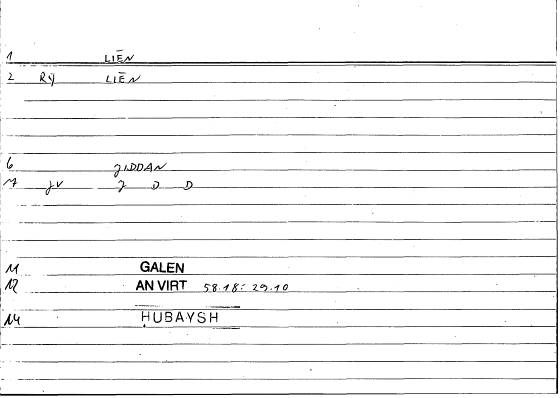 1 LIĒN
2 Rÿ LIĒN
6 ȷIDDAN
7 ȷV ȷ D D
11 GALEN
12 AN VIRT 58.18: 29.10
14 HUBAYSH